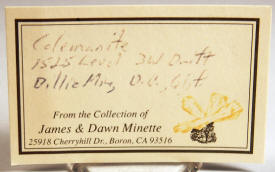 Colemanite
1525 Level 3W Drift
Billie Mine, D.V., Calif.
From the Collection of
James & Dawn Minette
25918 Cherryhill Dr., Boron, CA 93516